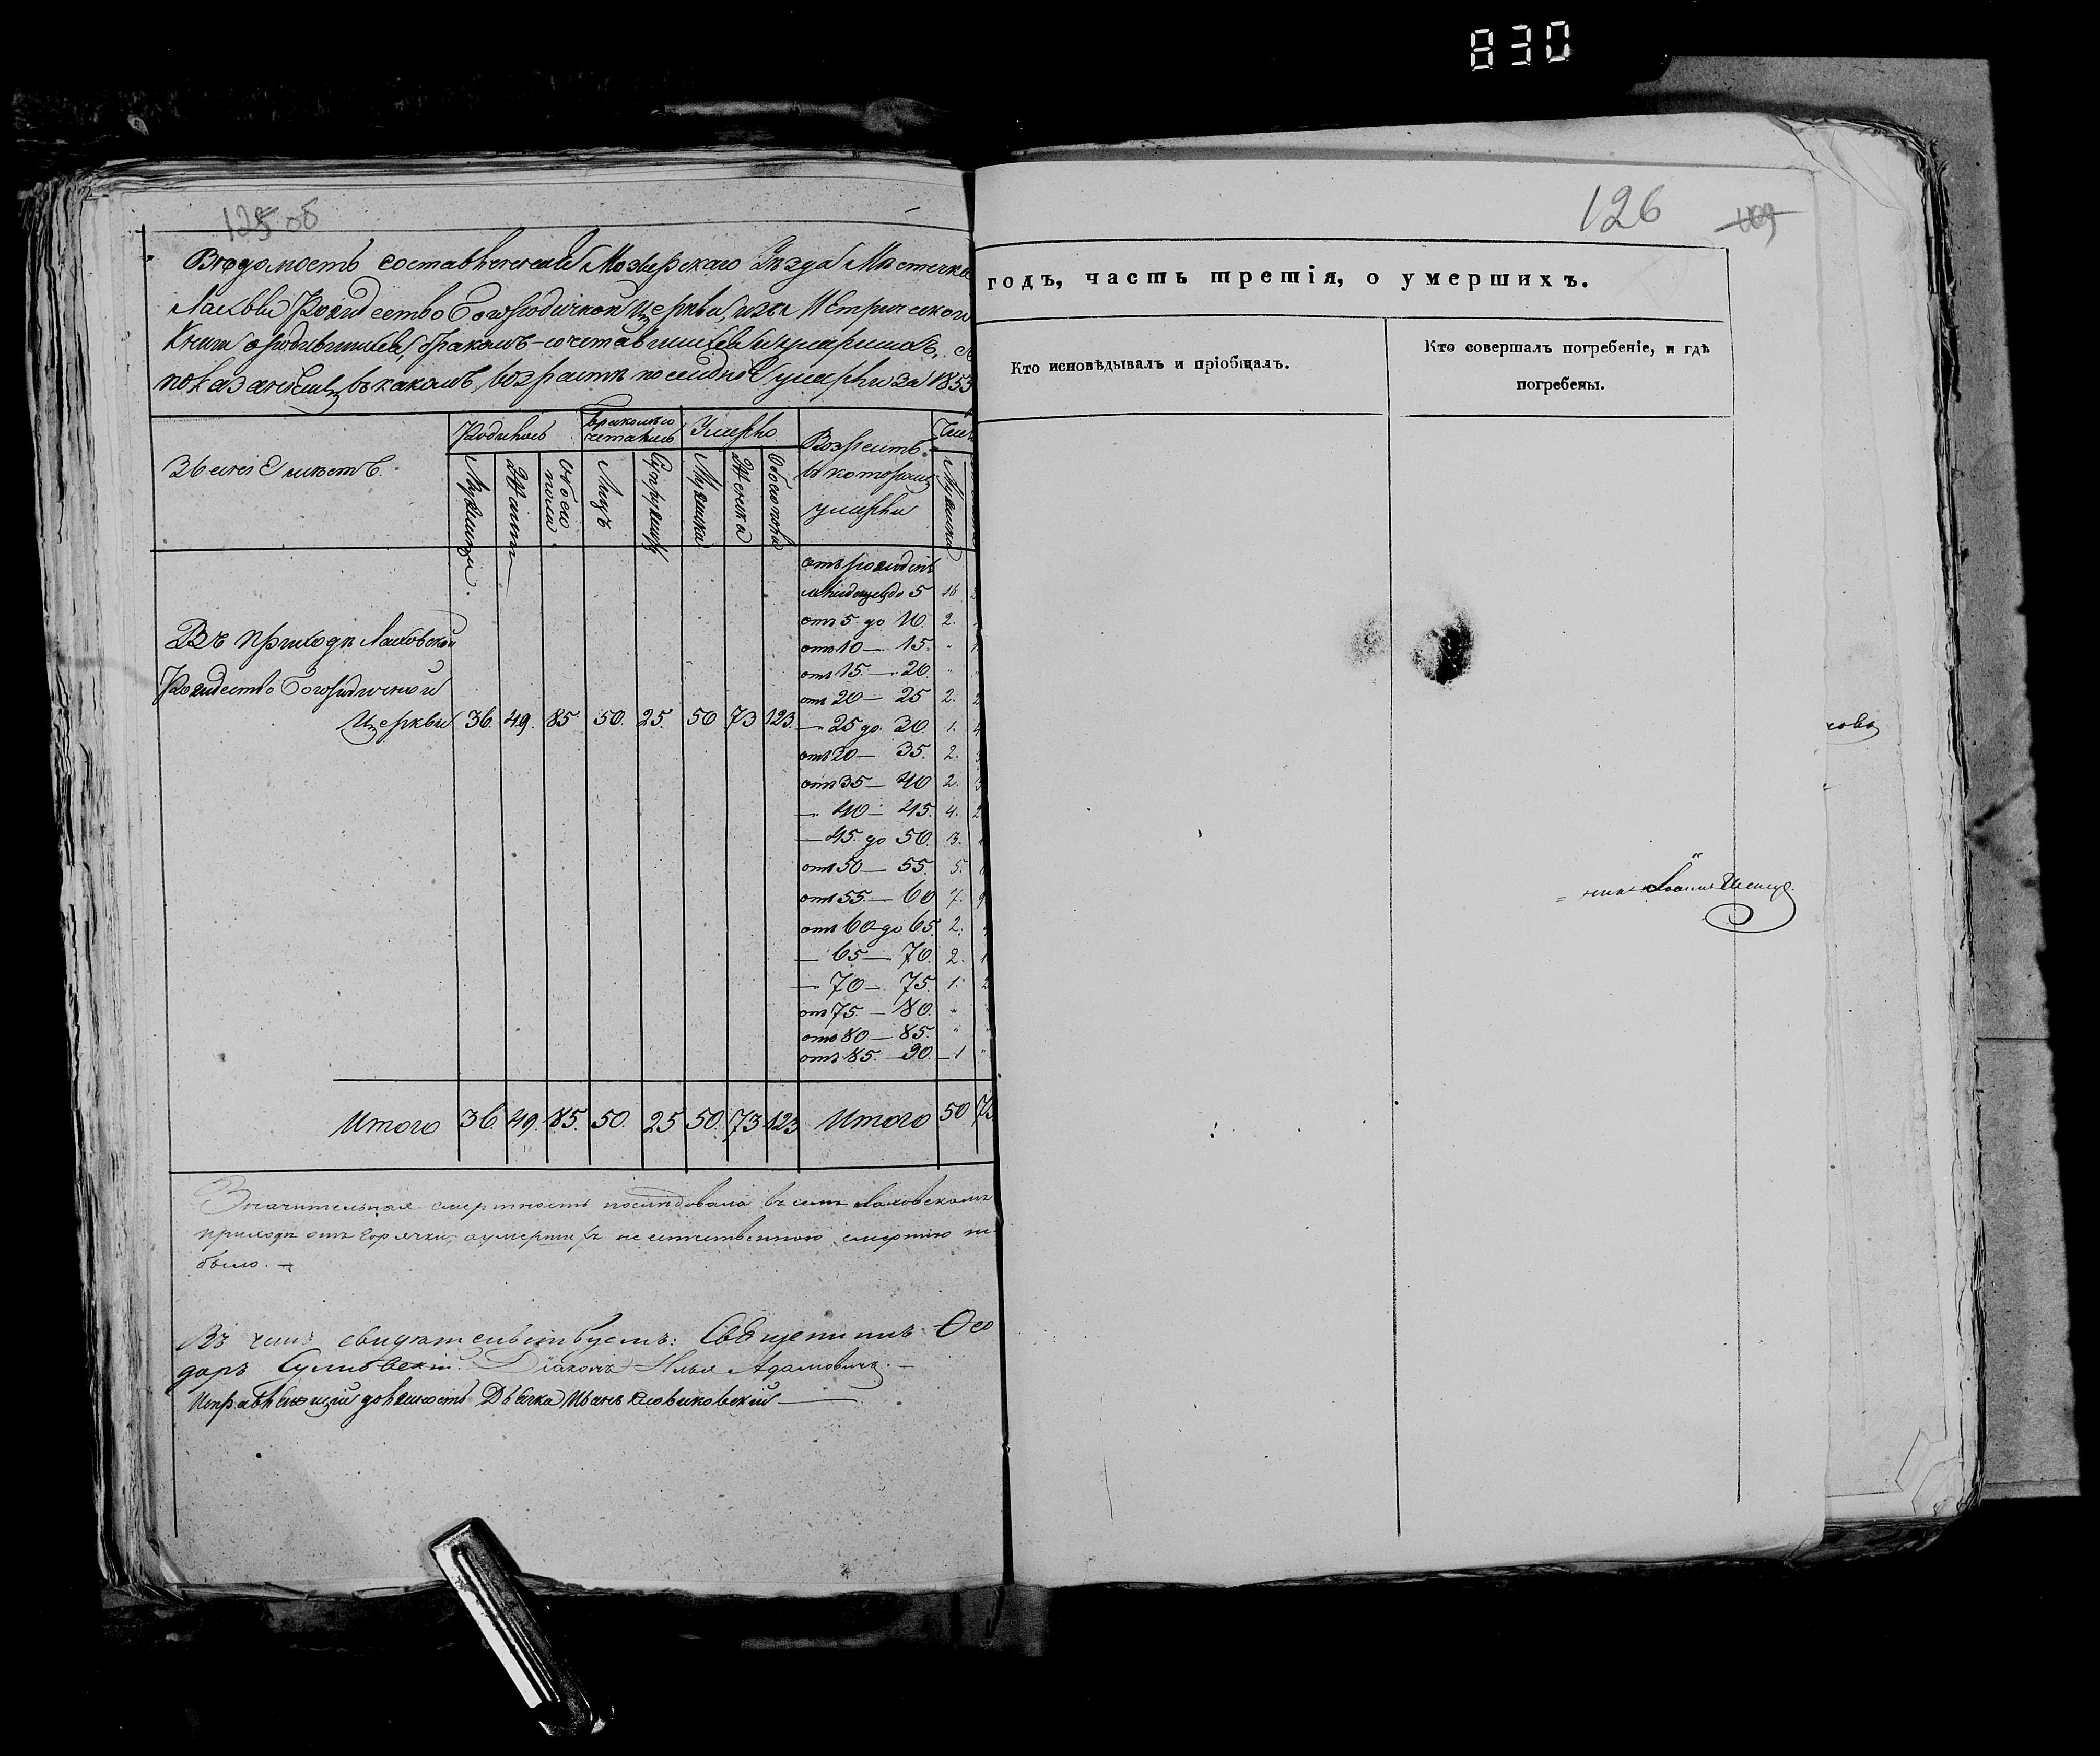 830
125 об
Ведомость составленная Мозырскаго Уезда Местечка
Лахвы Рождество Богородичной Церкви, изъ Метрической
Книги о родившихся, бракомъ-сочетавшихся и умершихъ, съ
показаніемъ въ какомъ возрасте последніе умерли за 1853
Званіе местъ.
Родилось
Бракомъ сочеталось
Умерло
Возрастъ въ которомъ умерли
Мужеска
Женска
обоего пола
Лицъ
Супружествъ
Мужеска
Женска
Обоего пола
Мужеска
отъ рожденія
младенцевъ до 5 18
отъ 5 до 10. 2.
отъ 10 — 15. "
отъ 15. — 20. "
отъ 20 — 25 2.
— 25 до 30. 1.
отъ 30 — 35. 2.
отъ 35 — 40 2.
— 40 — 45. 4.
— 45 до 50. 3.
отъ 50 — 55. 5.
отъ 55. — 60 7.
отъ 60 до 65. 2.
— 65 — 70. 2.
— 70 — 75. 1.
отъ 75. — 80. "
отъ 80 — 85. "
отъ 85. — 90. 1
Въ приходе Лаховской
Рождество Богородичной
Церкви 36. 49. 85. 50. 25. 50 73 123.
Итого 36. 49. 85. 50. 25 50. 73 123 Итого 50 73
Значительная смертность последовала въ семъ Лаховскомъ
приходе отъ горячки, а умершихъ не естественною смертію не
было.
Въ чемъ свидетельствуемъ: Священникъ Ѳео
доръ Діаконъ Илья Адамовичъ.
Исправляющій должность Дьячка Иванъ
126
годъ, часть третія, о умершихъ.
Кто исповѣдывалъ и пріобщалъ.
Кто совершалъ погребеніе, и гдѣ
погребены.